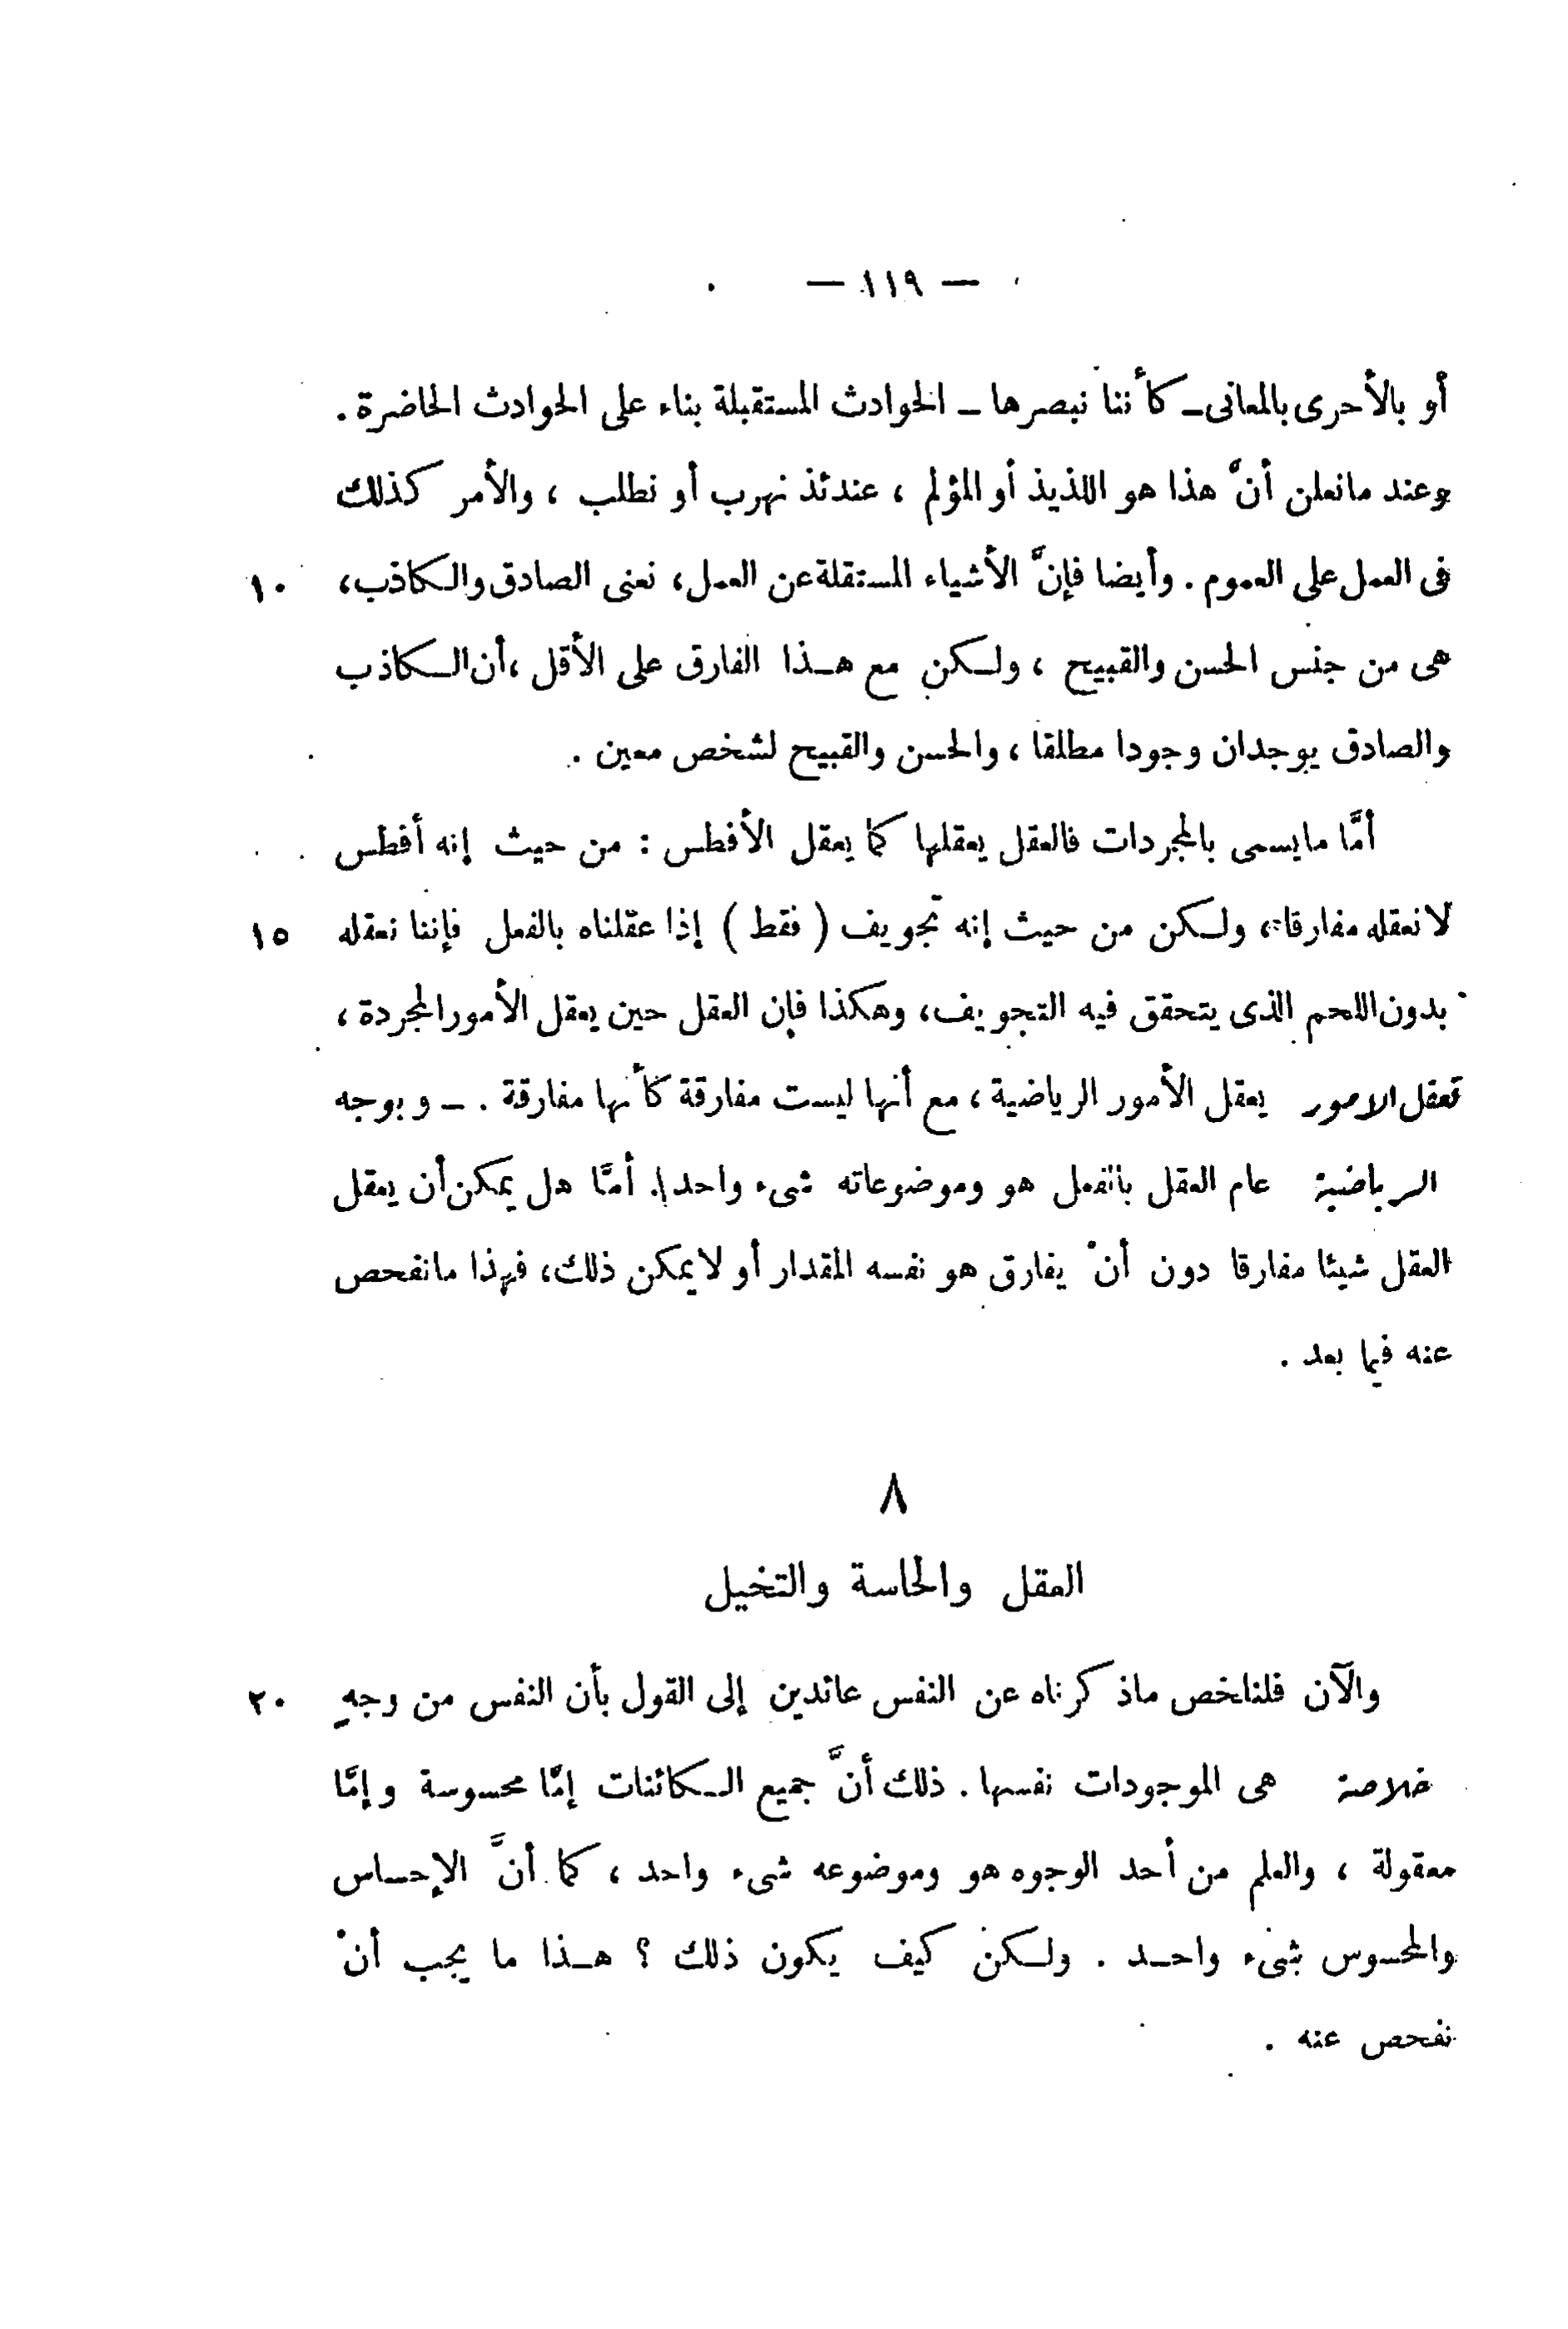 — ١١٩ —
أو بالأحرى بالمعانى ـ كأننا نبصرها ـ الحوادث المستقبلة بناء على الحوادث الحاضرة .
وعند مانعلن أنَّ هذا هو اللذيذ أو المؤلم ، عندئذ نهرب أو نطلب ، والأمر كذلك
فى العمل على العموم . وأيضا فإنَّ الأشياء المستقلة عن العمل، نعنى الصادق والكاذب، ١٠
هى من جنس الحسن والقبيح ، ولـكن مع هـذا الفارق على الأقل ،أن الـكاذب
والصادق يوجدان وجودا مطلقا ، والحسن والقبيح لشخص معين .
أمَّا مايسمى بالمجردات فالعقل يعقلها كما يعقل الأفطس : من حيث إنه أفطس
لا نعقله مفارقا، ولـكن من حيث إنه تجويف ( فقط ) إذا عقلناه بالفعل فإننا نعقله ١٥
بدون اللحم الذى يتحقق فيه التجويف، وهكذا فإن العقل حين يعقل الأمور المجردة ،
تعقل الامور يعقل الأمور الرياضية ، مع أنها ليست مفارقة كأنها مفارقة . ـ وبوجه
الرياضية عام العقل بالفعل هو وموضوعاته شىء واحد . أمَّا هل يمكن أن يعقل
العقل شيئا مفارقا دون أنْ يفارق هو نفسه المقدار أو لا يمكن ذلك، فهذا مانفحص
عنه فيما بعد .
٨
العقل والحاسة والتخيل
والآن فلنلخص ماذكرناه عن النفس عائدين إلى القول بأن النفس من وجهٍ ٢٠
خلاصة هى الموجودات نفسها . ذلك أنَّ جميع الـكائنات إمَّا محسوسة وإمَّا
معقولة ، والعلم من أحد الوجوه هو وموضوعه شىء واحد ، كما أنَّ الإحساس
والمحسوس شىء واحـد . ولـكن كيف يكون ذلك ؟ هـذا ما يجب أنْ
نفحص عنه .